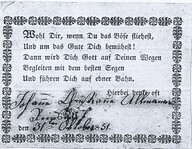 Wohl Dir, wenn Du das Böse fliehest,
Und um das Gute Dich bemühest!
Dann wird Dich Gott auf Deinen Wegen
Begleiten mit dem besten Segen
Und führen Dich auf ebner Bahn.
Hierbei denke oft
Johann Christiane
den 31 October 51.